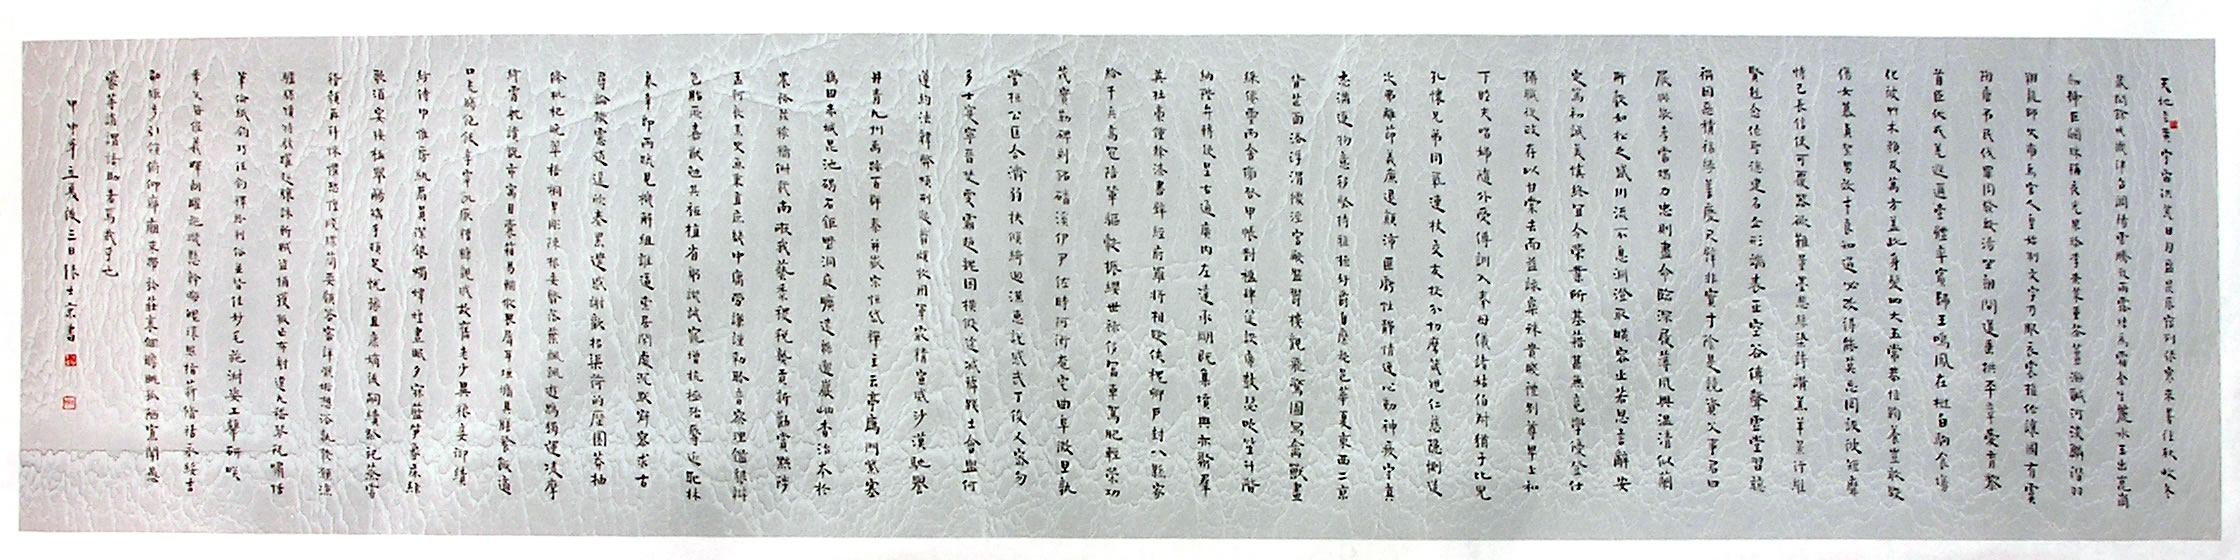 天地玄黃宇宙洪荒日月盈昃辰宿列張寒來暑往秋收冬
藏閏餘成歲律呂調陽雲騰致雨露結為霜金生麗水玉出崑岡
劍號巨闕珠稱夜光果珍李柰菜重芥薑海鹹河淡鱗潛羽
翔龍師火帝鳥官人皇始制文字乃服衣裳推位讓國有虞
陶唐弔民伐罪周發殷湯坐朝問道垂拱平章愛育黎
首臣伏戎羌遐邇壹體率賓歸王鳴鳳在樹白駒食場
化被草木賴及萬方蓋此身髮四大五常恭惟鞠養豈敢毀
傷女慕貞絜男效才良知過必改得能莫忘罔談彼短靡
恃己長信使可覆器欲難量墨悲絲染詩讚羔羊景行維
賢剋念作聖德建名立形端表正空谷傳聲虛堂習聽
禍因惡積福緣善慶尺璧非寶寸陰是競資父事君曰
嚴與敬孝當竭力忠則盡命臨深履薄夙興溫凊似蘭
斯馨如松之盛川流不息淵澄取映容止若思言辭安
定篤初誠美慎終宜令榮業所基籍甚無竟學優登仕
攝職從政存以甘棠去而益詠樂殊貴賤禮別尊卑上和
下睦夫唱婦隨外受傅訓入奉母儀諸姑伯叔猶子比兒
孔懷兄弟同氣連枝交友投分切磨箴規仁慈隱惻造
次弗離節義廉退顛沛匪虧性靜情逸心動神疲守真
志滿逐物意移堅持雅操好爵自縻都邑華夏東西二京
背芒面洛浮渭據涇宮殿盤鬱樓觀飛驚圖寫禽獸畫
綵仙靈丙舍傍啟甲帳對楹肆筵設席鼓瑟吹笙升階
納陛弁轉疑星右通廣內左達承明既集墳典亦聚群
英杜稾鍾隸漆書壁經府羅將相路俠槐卿戶封八縣家
給千兵高冠陪輦驅轂振纓世祿侈富車駕肥輕策功
茂實勒碑刻銘磻溪伊尹佐時阿衡奄宅曲阜微旦孰
營桓公匡合濟弱扶傾綺迴漢惠說感武丁俊乂密勿
多士寔寧晉楚更霸趙魏困橫假途滅虢踐土會盟何
遵約法韓弊煩刑起翦頗牧用軍最精宣威沙漠馳譽
丹青九州禹跡百郡秦并嶽宗恆岱禪主云亭雁門紫塞
雞田赤城昆池碣石鉅野洞庭曠遠綿邈巖岫杳治本於
農務茲稼穡俶載南畝我藝黍稷稅熟貢新勸賞黜陟
孟軻敦素史魚秉直庶幾中庸勞謙謹勑聆音察理鑑貌辨
色貽厥嘉猷勉其祗植省躬譏誡寵增抗極殆辱近恥林
皋幸即兩疏見機解組誰逼索居閒處沉默寂寥求古
尋論散慮逍遙欣奏累遣慼謝歡招渠荷的歷園莽抽
條枇杷晚翠梧桐早彫陳根委翳落葉飄颻遊鵾獨運凌摩
絳霄耽讀翫市寓目囊箱易輶攸畏屬耳垣牆具膳餐飯適
口充腸飽飫烹宰飢厭糟糠親戚故舊老少異糧妾御績
紡侍巾帷房紈扇圓潔銀燭煒煌晝眠夕寐藍笋象床絃
歌酒宴接杯舉觴矯手頓足悅豫且康嫡後嗣續祭祀蒸嘗
稽顙再拜悚懼恐惶牋牒簡要顧答審詳骸垢想浴執熱願涼
驢騾犢特駭躍超驤誅斬賊盜捕獲叛亡布射遼丸嵇琴阮嘯恬
筆倫紙鈞巧任釣釋紛利俗並皆佳妙毛施淑姿工顰妍咲
年矢每催羲暉朗曜璇璣懸斡晦魄環照指薪修祜永綏吉
劭矩步引領俯仰廊廟束帶矜莊徘徊瞻眺孤陋寡聞愚
蒙等誚謂語助者焉哉乎也
甲申年立夏後三日張士東書